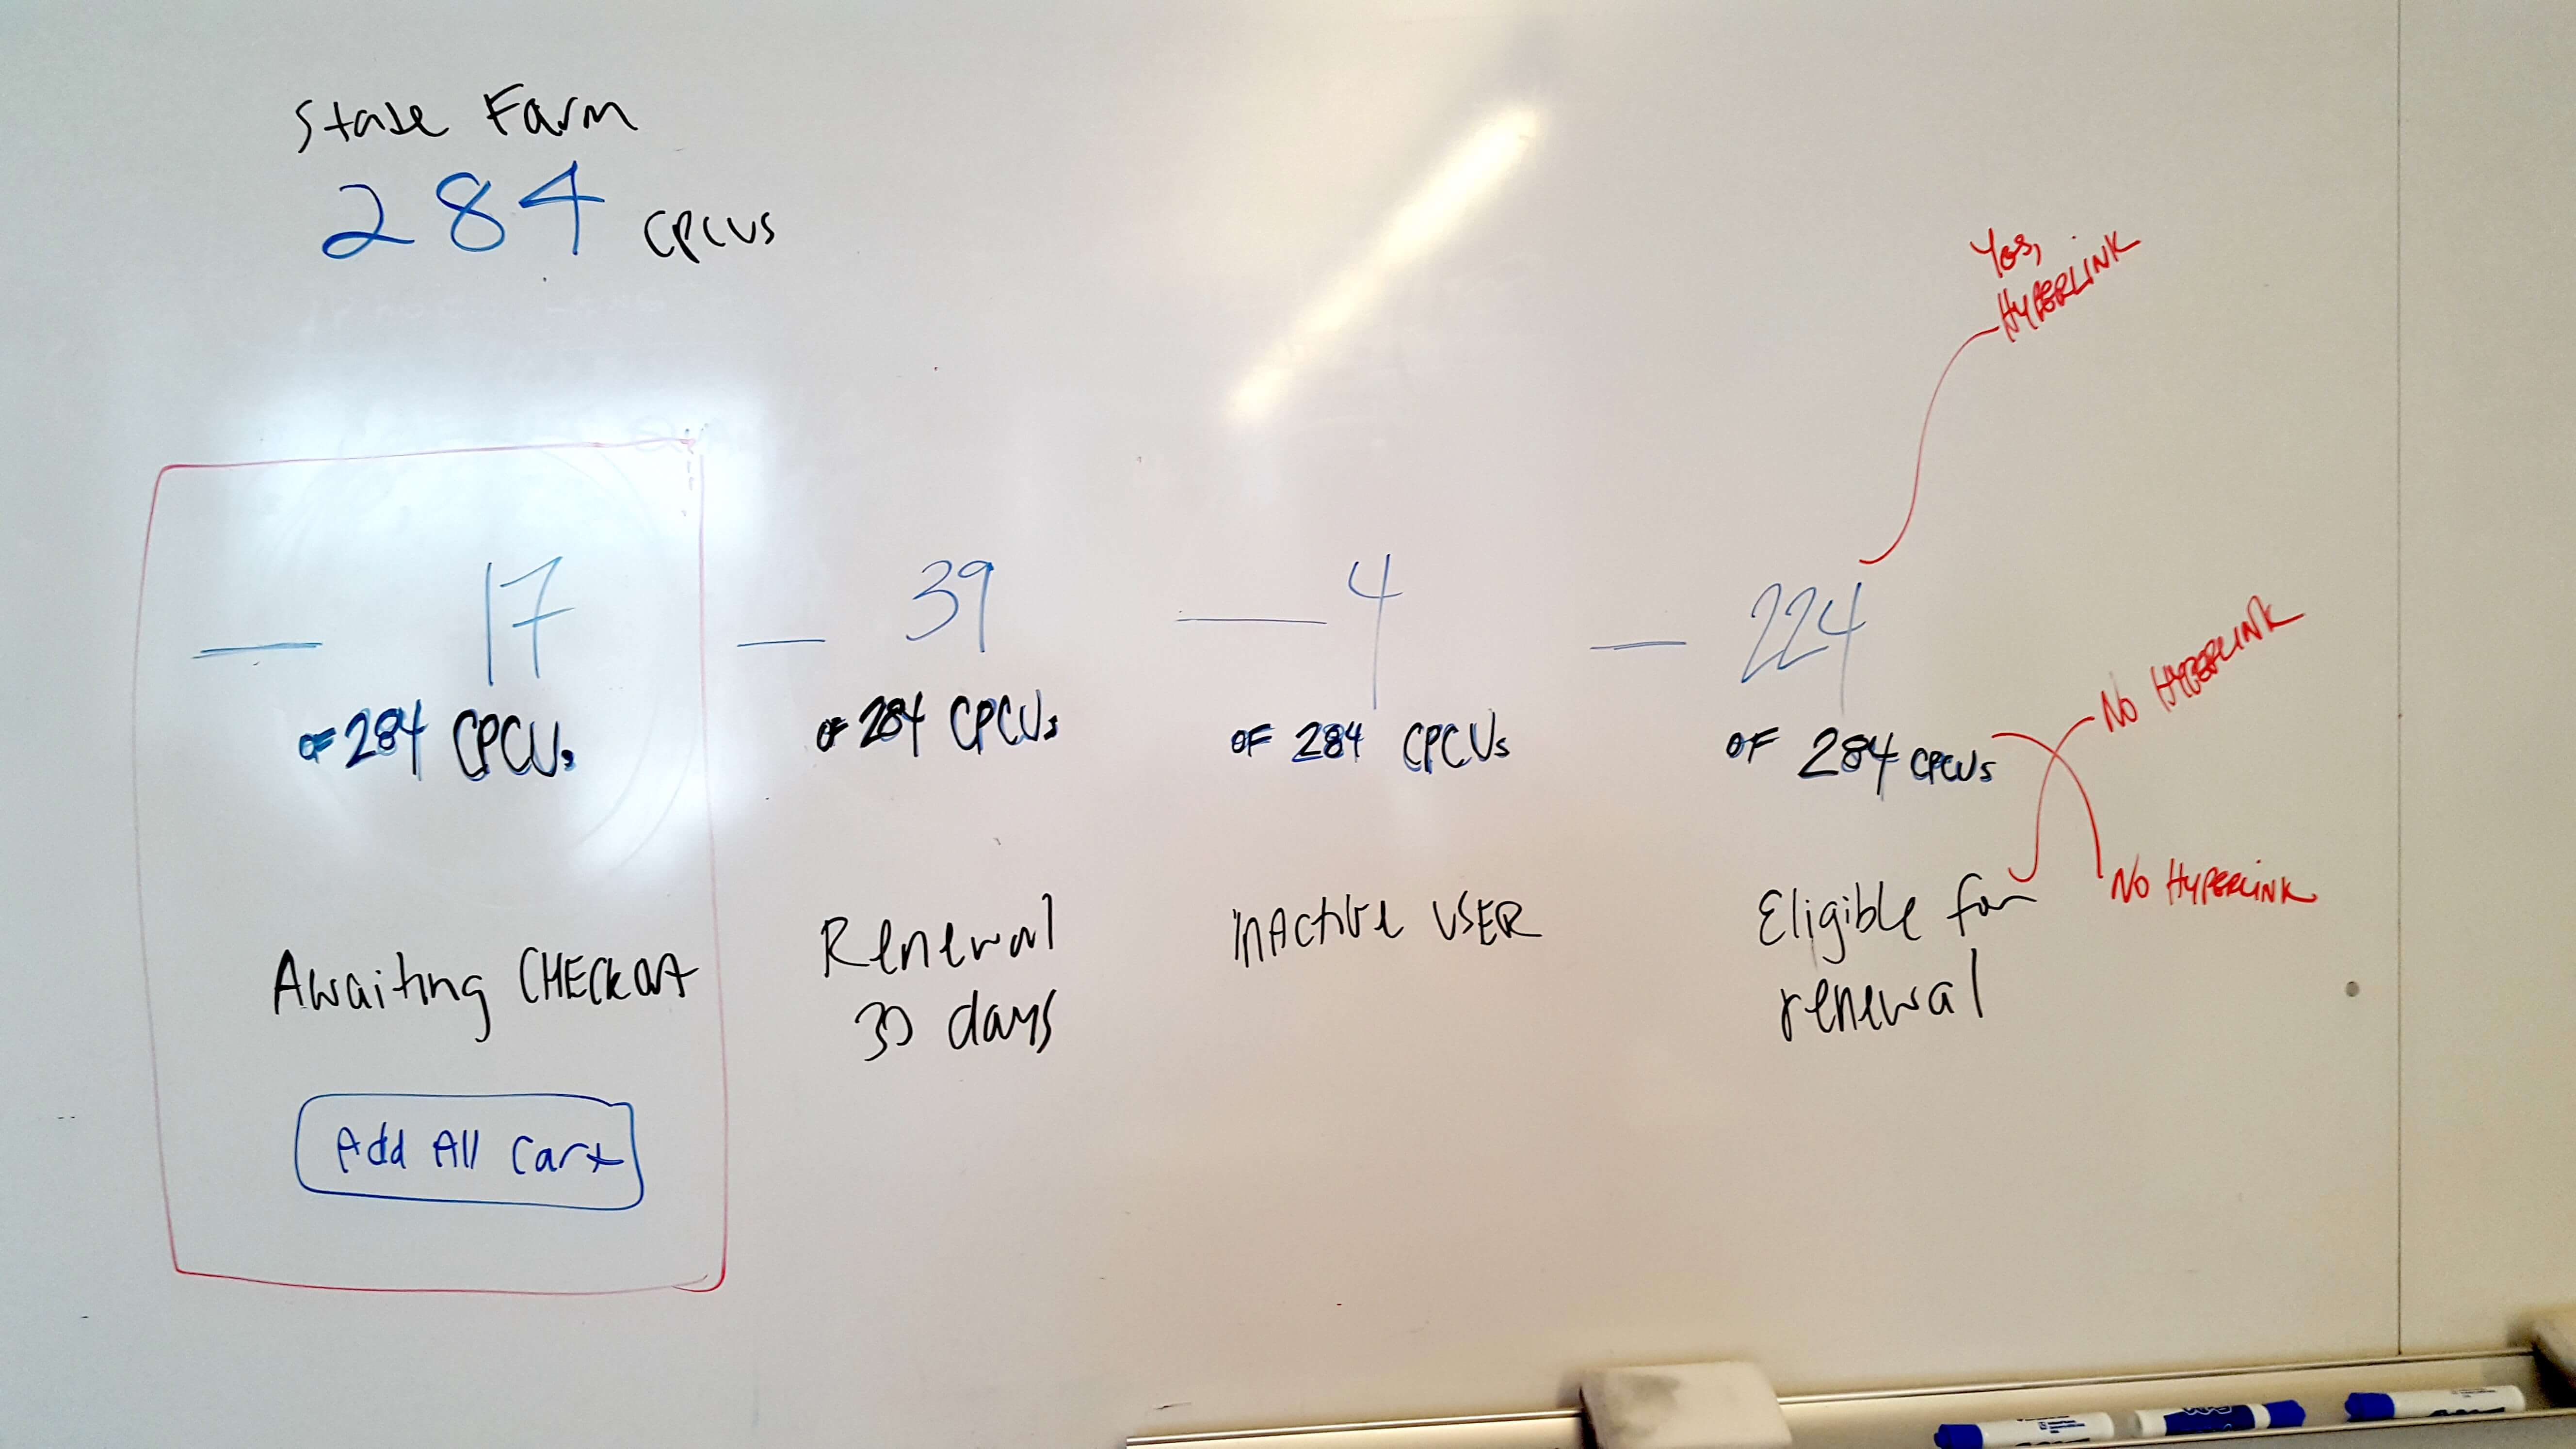 State Farm
284 CPCUs
Yes,
HYPERLINK
— 17
OF 284 CPCUs
Awaiting CHECKout
Add All Cart
— 39
OF 284 CPCUs
Renewal
30 days
— 4
OF 284 CPCUs
INActive USER
— 224
OF 284 CPCUs
Eligible for
renewal
No HYPERLINK
No HYPERLINK